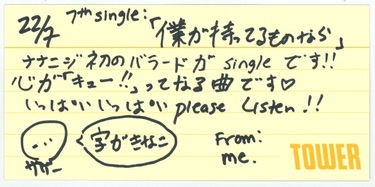 22/7 7th single:「僕が持ってるものなら」
ナナニジ初のバラードが single です!!
心が「キュー!!」ってなる曲です♡
いっぱいいっぱい please Listen !!
... 字がきなこ
From:
me.
TOWER